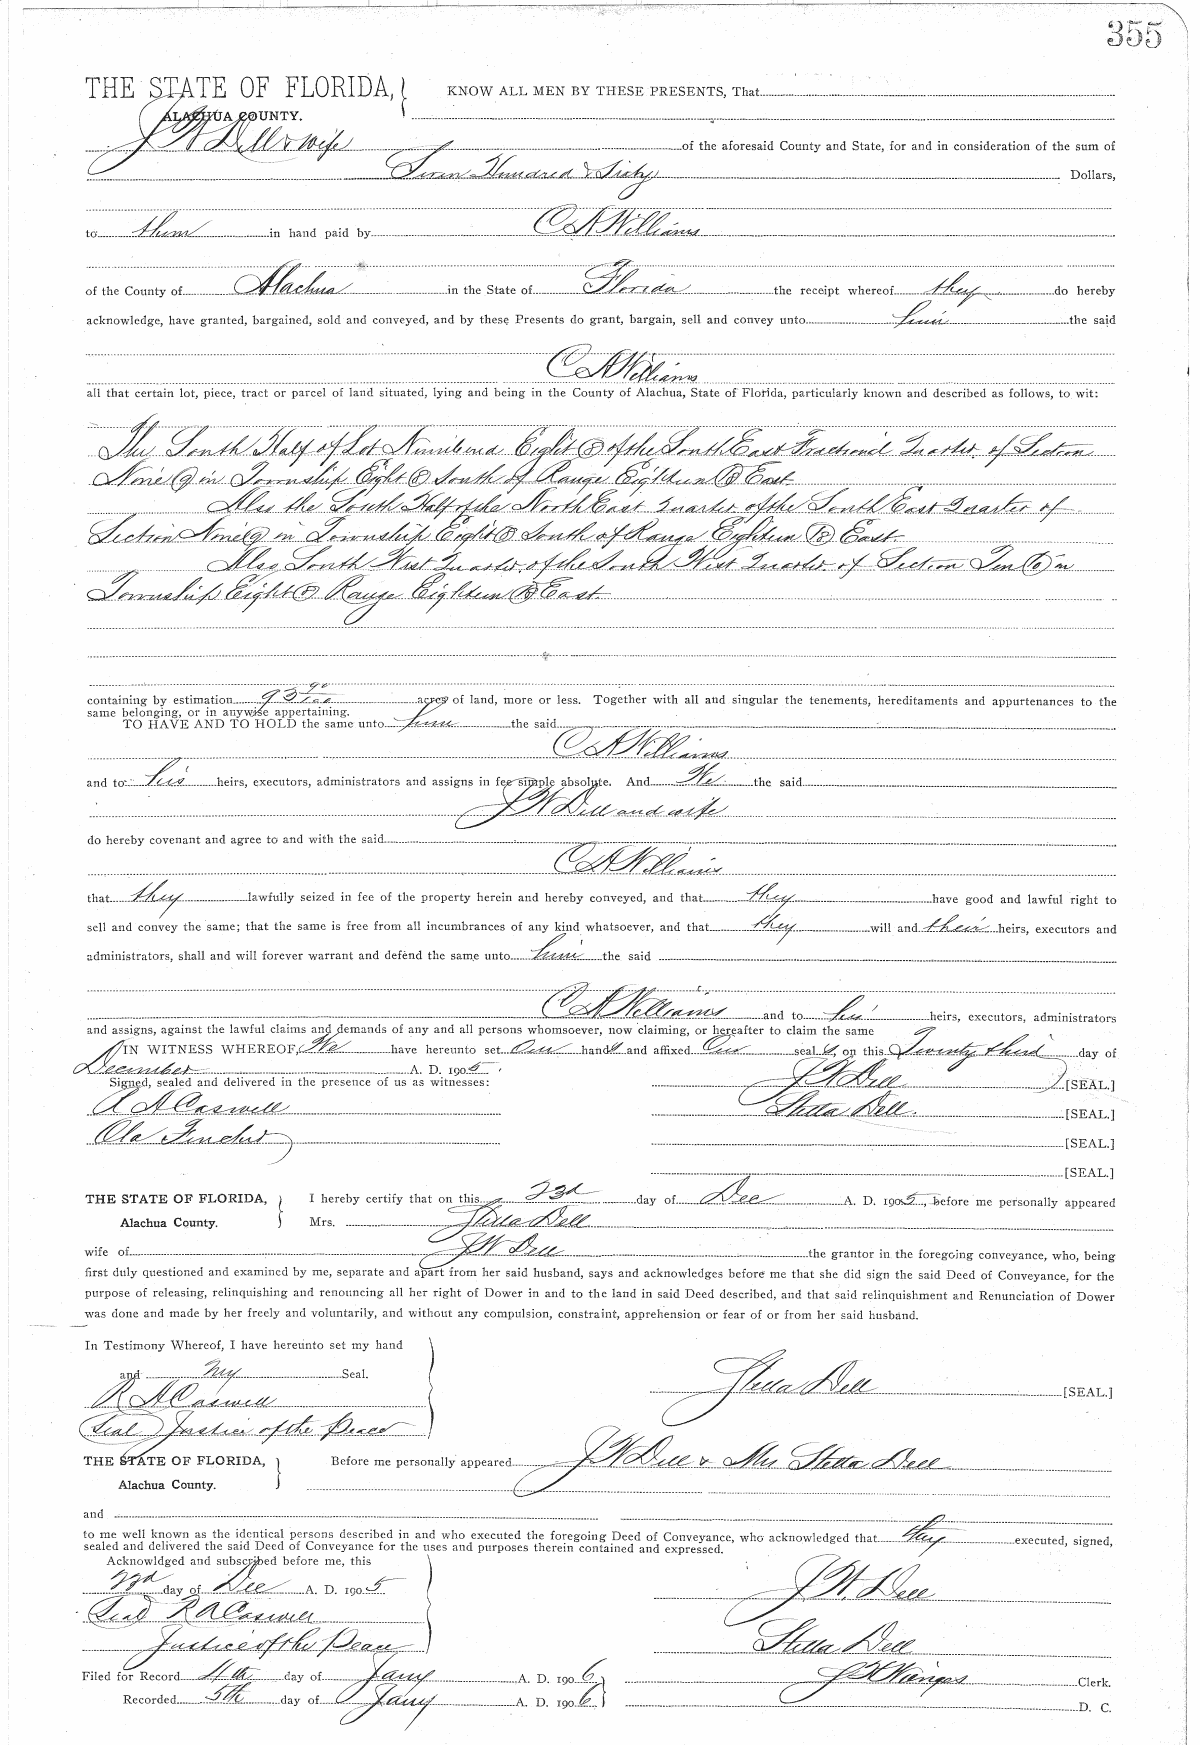 355
THE STATE OF FLORIDA, KNOW ALL MEN BY THESE PRESENTS, That
ALACHUA COUNTY.
J W Dell & wife of the aforesaid County and State, for and in consideration of the sum of
Seven Hundred & Sixty Dollars,
to them in hand paid by C A Williams
of the County of Alachua in the State of Florida the receipt whereof they do hereby
acknowledge, have granted, bargained, sold and conveyed, and by these Presents do grant, bargain, sell and convey unto him the said
C A Williams
all that certain lot, piece, tract or parcel of land situated, lying and being in the County of Alachua, State of Florida, particularly known and described as follows, to wit:
The South Half of Lot Numbered Eight (8) of the South East Fractional Quarter of Section
Nine (9) in Township Eight (8) South of Range Eighteen (18) East
Also the South Half of the North East Quarter of the South East Quarter of
Section Nine (9) in Township Eight (8) South of Range Eighteen (18) East.
Also South West Quarter of the South West Quarter of Section Ten (10) in
Township Eight (8) Range Eighteen (18) East.
containing by estimation 93 90/100 acres of land, more or less. Together with all and singular the tenements, hereditaments and appurtenances to the
same belonging, or in anywise appertaining.
TO HAVE AND TO HOLD the same unto him the said
C A Williams
and to his heirs, executors, administrators and assigns in fee simple absolute. And We the said
J W Dell and wife
do hereby covenant and agree to and with the said
C A Williams
that they lawfully seized in fee of the property herein and hereby conveyed, and that they have good and lawful right to
sell and convey the same; that the same is free from all incumbrances of any kind whatsoever, and that they will and their heirs, executors and
administrators, shall and will forever warrant and defend the same unto him the said
C A Williams and to his heirs, executors, administrators
and assigns, against the lawful claims and demands of any and all persons whomsoever, now claiming, or hereafter to claim the same
IN WITNESS WHEREOF, We have hereunto set Our hands and affixed Our seal s, on this Twenty third day of
December A. D. 1905.
Signed, sealed and delivered in the presence of us as witnesses: J W Dell [SEAL.]
R A Caswell Stella Dell. [SEAL.]
Ola [SEAL.]
[SEAL.]
THE STATE OF FLORIDA, I hereby certify that on this 23d day of Dec A. D. 1905, before me personally appeared
Alachua County. Mrs. Stella Dell
wife of J W Dell the grantor in the foregoing conveyance, who, being
first duly questioned and examined by me, separate and apart from her said husband, says and acknowledges before me that she did sign the said Deed of Conveyance, for the
purpose of releasing, relinquishing and renouncing all her right of Dower in and to the land in said Deed described, and that said relinquishment and Renunciation of Dower
was done and made by her freely and voluntarily, and without any compulsion, constraint, apprehension or fear of or from her said husband.
In Testimony Whereof, I have hereunto set my hand
and my Seal.
R A Caswell Stella Dell [SEAL.]
Seal Justice of the Peace
THE STATE OF FLORIDA, Before me personally appeared J W Dell & Mrs Stella Dell
Alachua County.
and
to me well known as the identical persons described in and who executed the foregoing Deed of Conveyance, who acknowledged that they executed, signed,
sealed and delivered the said Deed of Conveyance for the uses and purposes therein contained and expressed.
Acknowldged and subscribed before me, this
23d day of Dec A. D. 1905 J. W. Dell
Seal R A Caswell
Justice of the Peace Stella Dell
Filed for Record 4th day of Jany A. D. 1906 Clerk.
Recorded 5th day of Jany A. D. 1906 D. C.